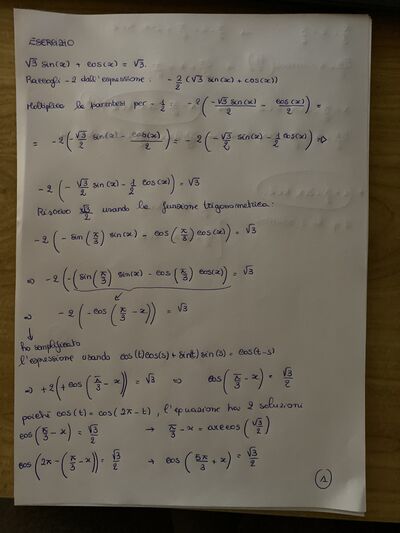 ESERCIZIO
√3 sin(x) + cos(x) = √3.
Raccogli -2 dall'espressione: - 2/2 (√3 sin(x) + cos(x))
Moltiplico le parentesi per - 1/2 : -2(-√3 sin(x)/2 - cos(x)/2) =
= -2(-√3/2 sin(x) - cos(x)/2) = -2(-√3/2 sin(x) - 1/2 cos(x)) ⇒
-2(-√3/2 sin(x) - 1/2 cos(x)) = √3
Riscrivo √3/2 usando le funzione trigonometrica:
-2(-sin(π/3) sin(x) - cos(π/3) cos(x)) = √3
⇒ -2(-(sin(π/3) sin(x) - cos(π/3) cos(x)) = √3
⇒ -2(-cos(π/3 - x)) = √3
↓
ho semplificato
l'espressione usando cos(t)cos(s) + sin(t)sin(s) = cos(t-s)
⇒ +2(+cos(π/3 - x)) = √3 ⇒ cos(π/3 - x) = √3/2
poiché cos(t) = cos(2π - t), l'equazione ha 2 soluzioni
cos(π/3 - x) = √3/2 → π/3 - x = arccos(√3/2)
cos(2π - (π/3 - x)) = √3/2 → cos(5π/3 + x) = √3/2
1